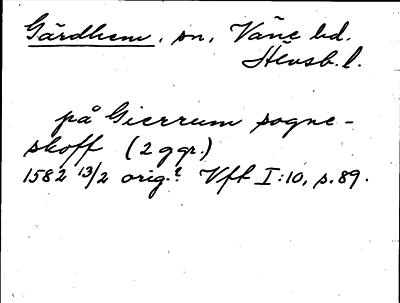 Gärdhem, sn, Väne hd.
Älvsb.l.
på Gierrum sogne-
skoff (2 ggr.)
1582 13/2 orig.? Vft I:10, s.89.